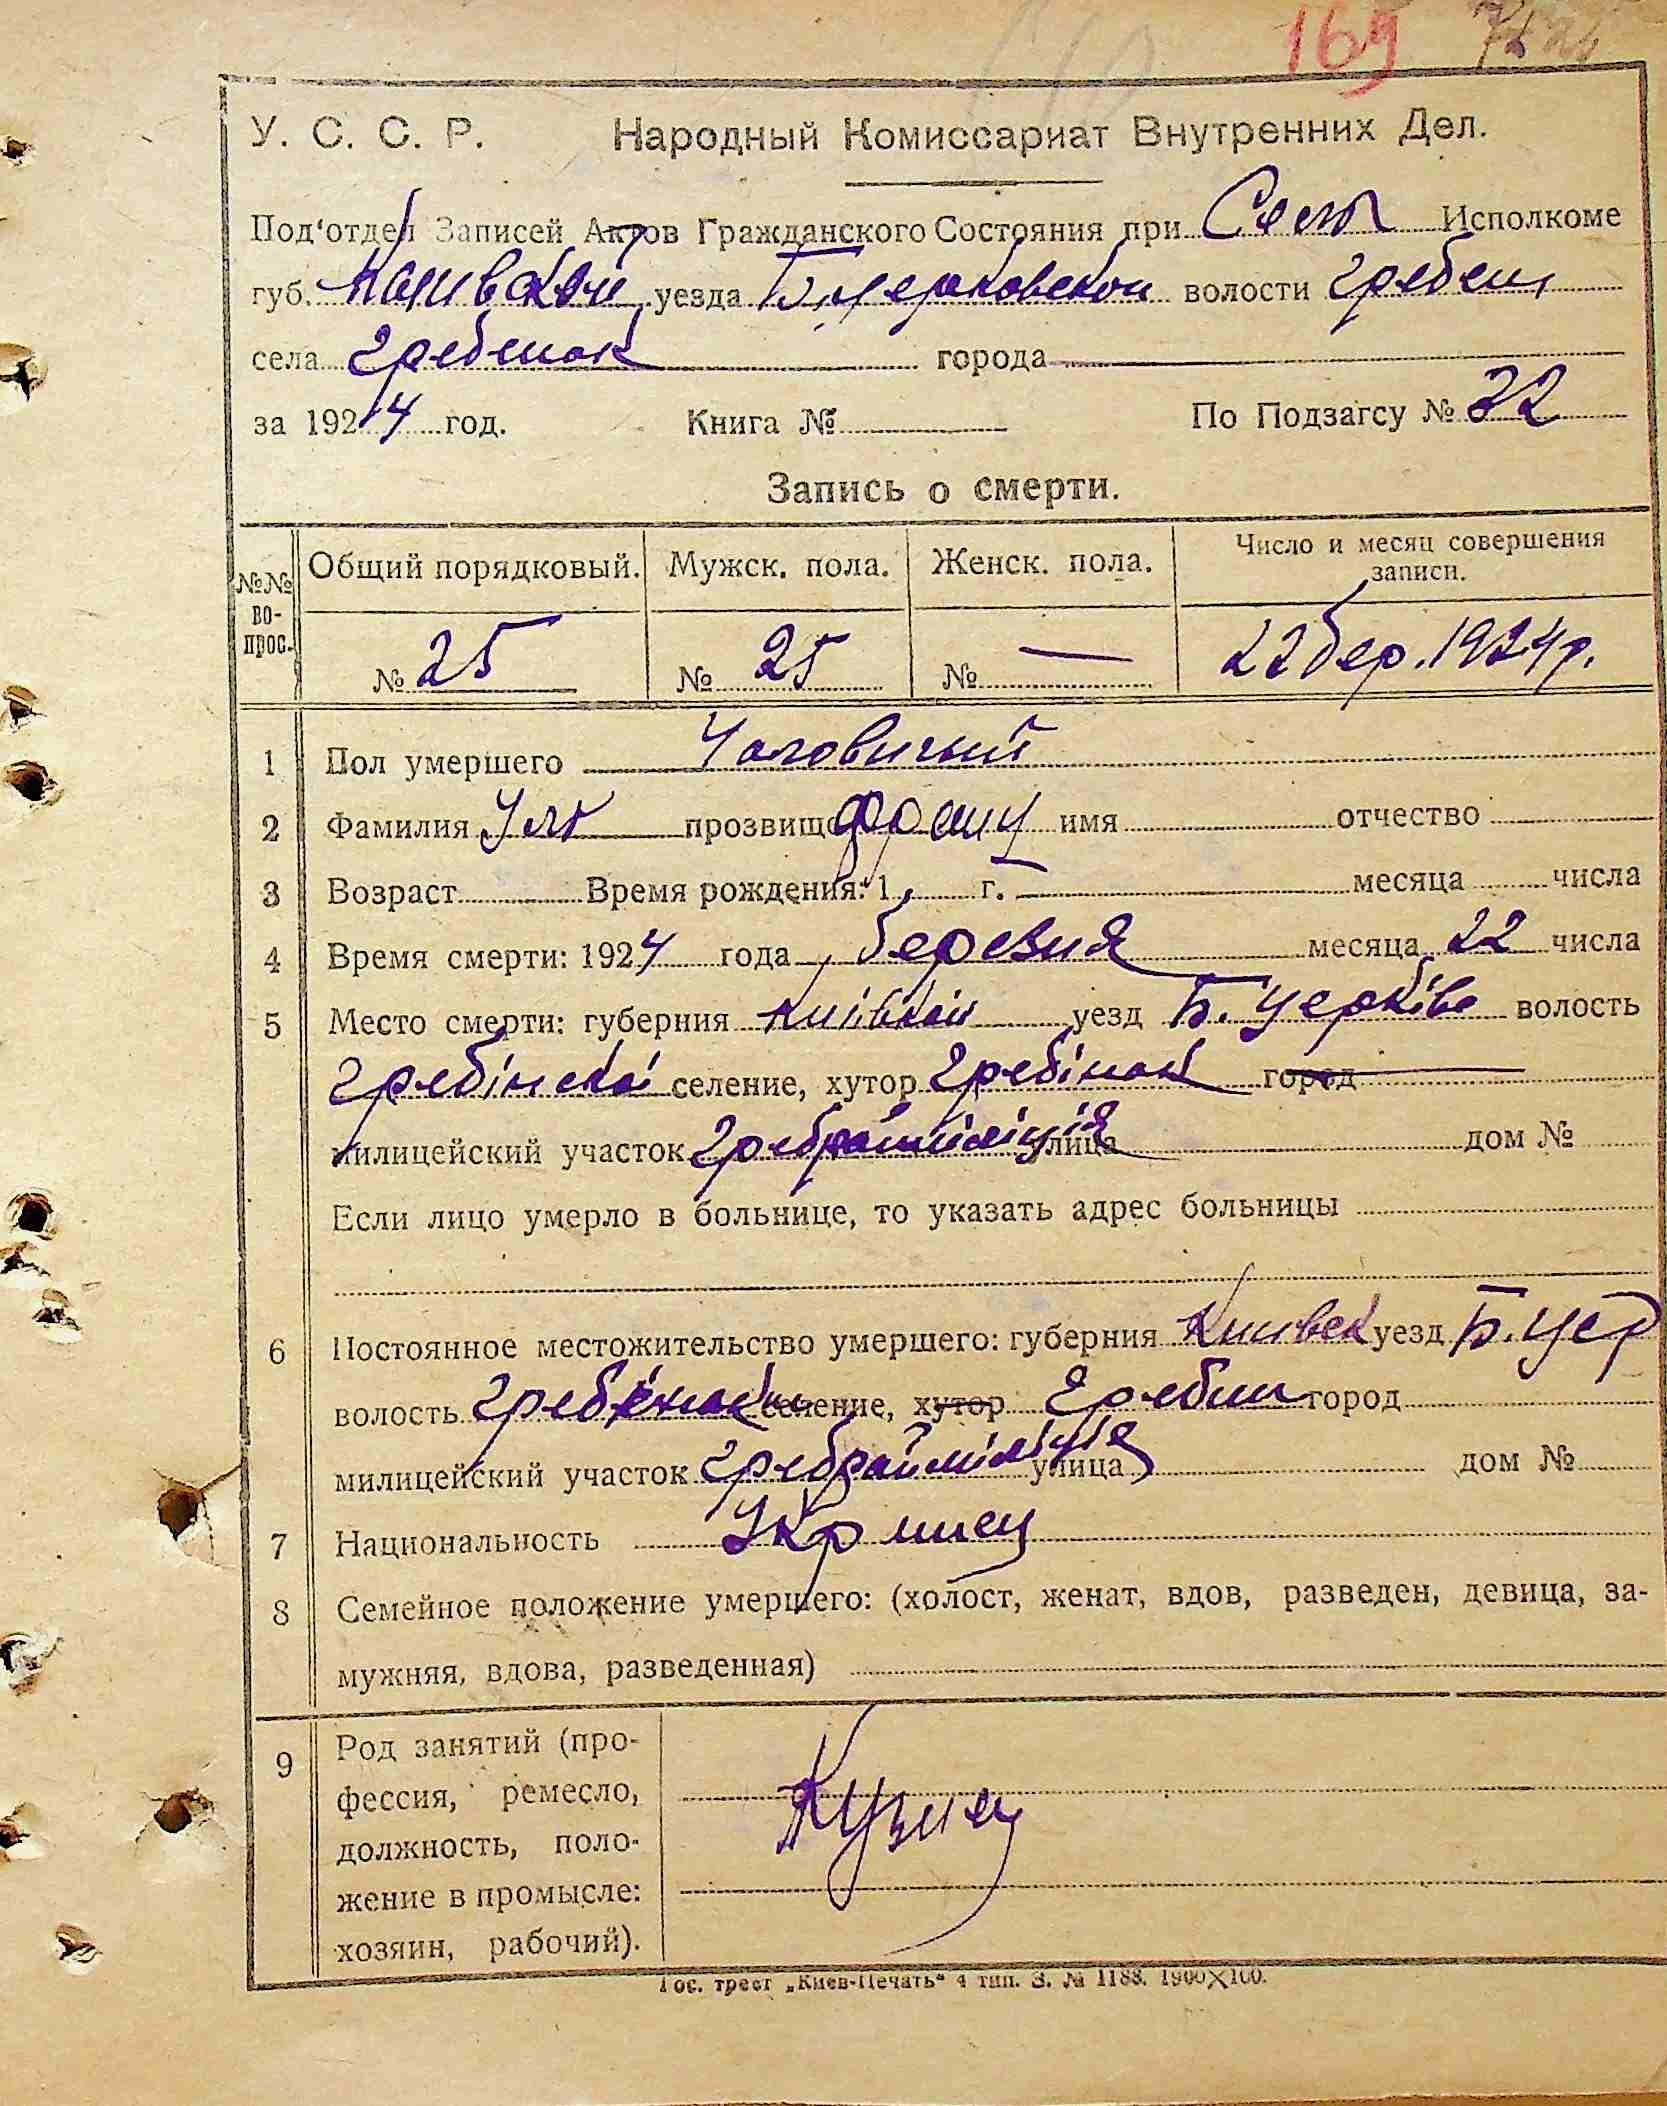 169
У. С. С. Р. Народный Комиссариат Внутренних Дел.
Под'отдел Записей Актов Гражданского Состояния при Исполкоме
губ. уезда волости Гребен
села Гребенок города
за 1924 год. Книга № По Подзагсу № 22
Запись о смерти.
№№ во-прос. Общий порядковый. Мужск. пола. Женск. пола. Число и месяц совершения записи.
№ 25 № 25 № — 22 бер. 1924 р.
1 Пол умершего Чоловичый
2 Фамилия прозвище имя отчество
3 Возраст Время рождения: 1 г. месяца числа
4 Время смерти: 1924 года березня месяца 22 числа
5 Место смерти: губерния уезд Б. Церкове волость
Гребінскоі селение, хутор Гребінок город
милицейский участок Гребрайміліція улица дом №
Если лицо умерло в больнице, то указать адрес больницы
6 Постоянное местожительство умершего: губерния Киивск уезд Б. Цер
волость селение, хутор Гребин город
милицейский участок Гребрайміліція улица дом №
7 Национальность
8 Семейное положение умершего: (холост, женат, вдов, разведен, девица, за-
мужняя, вдова, разведенная)
9 Род занятий (про-
фессия, ремесло,
должность, поло-
жение в промысле:
хозяин, рабочий).
Кузнец
Гос. трест „Киев-Печать“ 4 тип. З. № 1188. 1900×100.